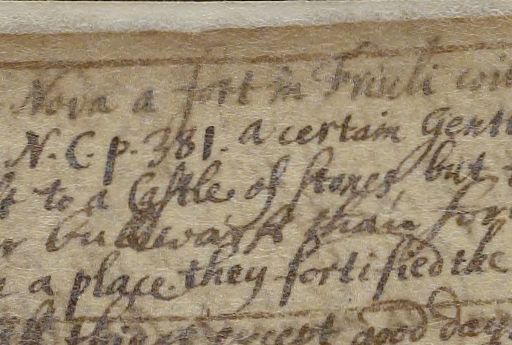 Nova a fort in Friuli
N. C. p. 381. a certain
to a Castle of stones but
bullwark than for
a place they fortified the
except good day